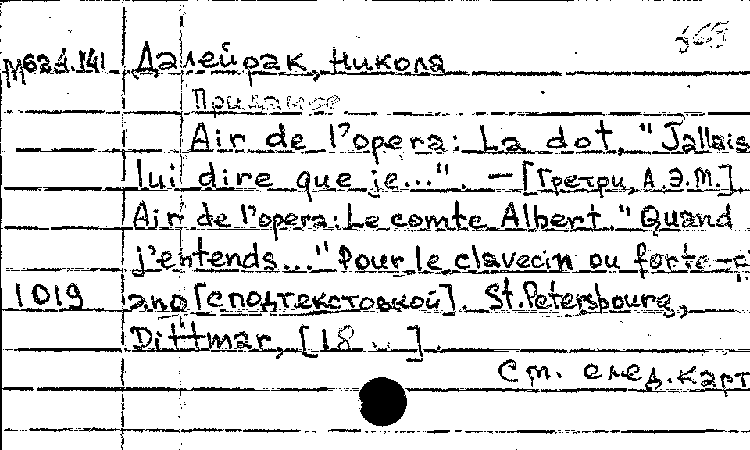 363
М62д.141 Далейрак, Никола
Приданое
Air de l'opera: La dot, "Jallais
lui dire que je...". — [Гретри, А.Э.М.].
Air de l'opera: Le comte Albert "Quand
j'entends..." Pour le clavecin ou forte-pi
1019 ano [сподтекстовкой]. St. Petersbourg,
Dittmar, [18 ].
См. след. карт